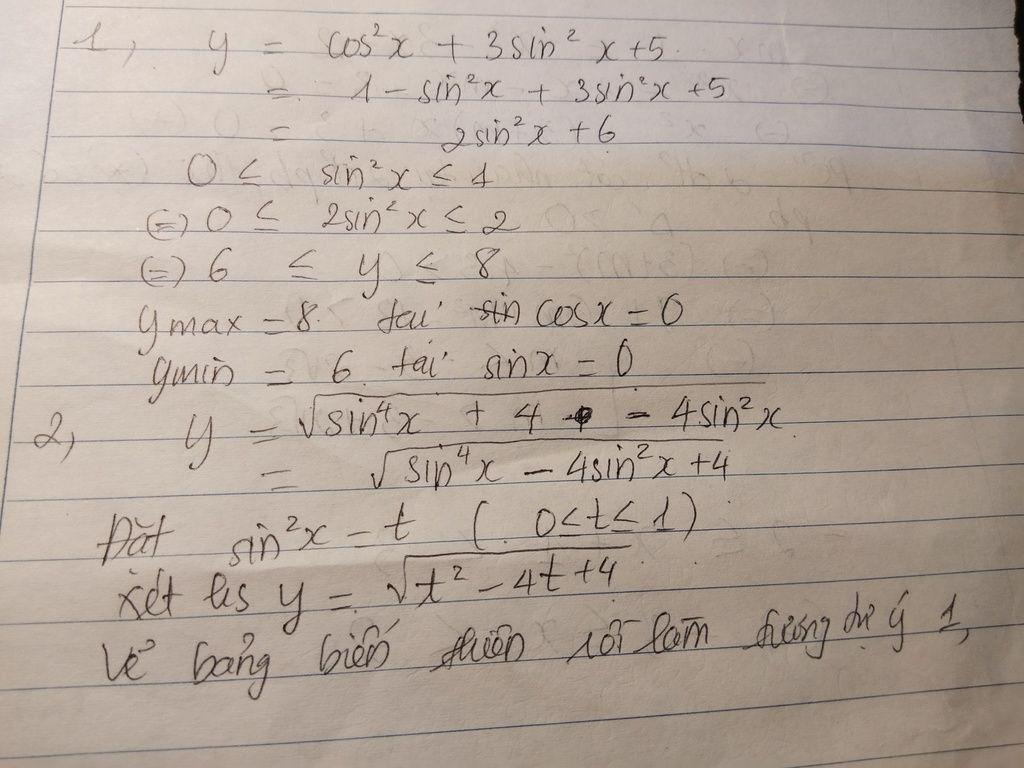 1, y = cos²x + 3sin²x +5
= 1 - sin²x + 3sin²x +5
= 2sin²x + 6
0 ≤ sin²x ≤ 1
(=) 0 ≤ 2sin²x ≤ 2
(=) 6 ≤ y ≤ 8
ymax = 8 tại cosx = 0
ymin = 6 tại sinx = 0
2, y = √(sin⁴x + 4 - 4sin²x)
= √(sin⁴x - 4sin²x + 4)
Đặt sin²x = t ( 0≤t≤1)
Xét y = √(t² - 4t +4)
Vẽ bảng biến thiên rồi làm tương tự ý 1,